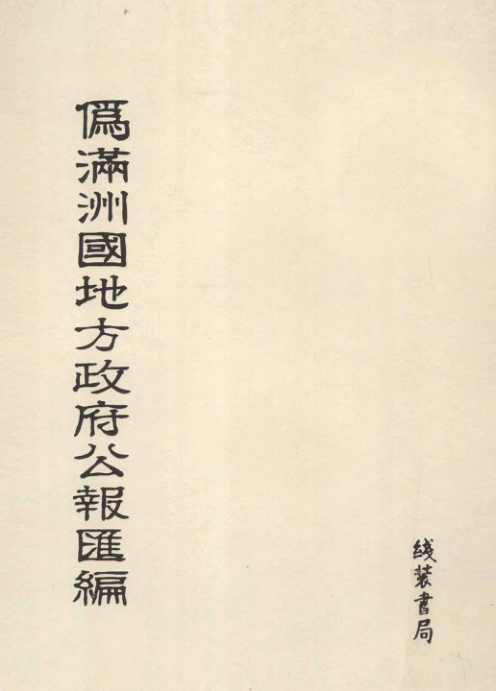 偽滿洲國地方政府公報匯編
线装書局